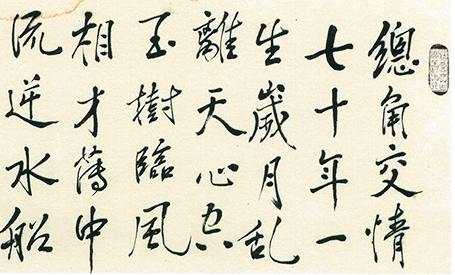 總角交情
七十年一
生歲月乱
離天心空
玉樹臨風
相才薄中
流逆水船